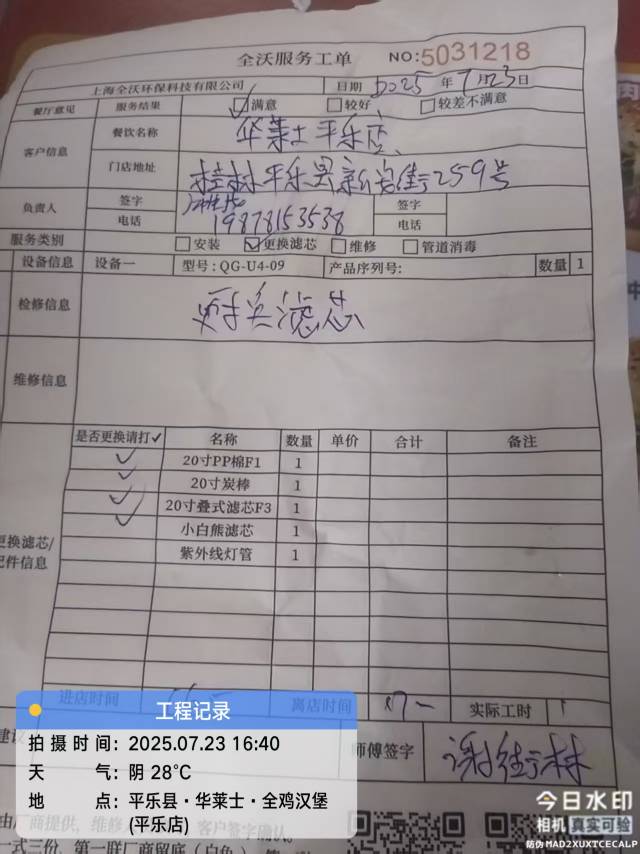 全沃服务工单 NO:5031218
上海全沃环保科技有限公司 日期 2025 年 7月23日
餐厅意见 服务结果 ☑满意 □较好 □较差不满意
客户信息 餐饮名称 华莱士平乐店
门店地址 桂林平乐县新安街259号
负责人 签字 签字
电话 19878153538 电话
服务类别 □安装 ☑更换滤芯 □维修 □管道消毒
设备信息 设备一 型号:QG-U4-09 产品序列号: 数量 1
检修信息 更换滤芯
维修信息
是否更换请打✓ 名称 数量 单价 合计 备注
✓ 20寸PP棉F1 1
✓ 20寸炭棒 1
✓ 20寸叠式滤芯F3 1
✓ 小白熊滤芯 1
紫外线灯管 1
更换滤芯/
配件信息
进店时间 离店时间 实际工时 1
建议 师傅签字 谢街林
工程记录
拍摄时间：2025.07.23 16:40
天 气：阴 28°C
地 点：平乐县·华莱士·全鸡汉堡
(平乐店)
今日水印
相机 真实可验
防伪 MAD2XUXTCECALP
由厂商提供，维修 客户签字确认。
一式三份，第一联厂商留底（白色）